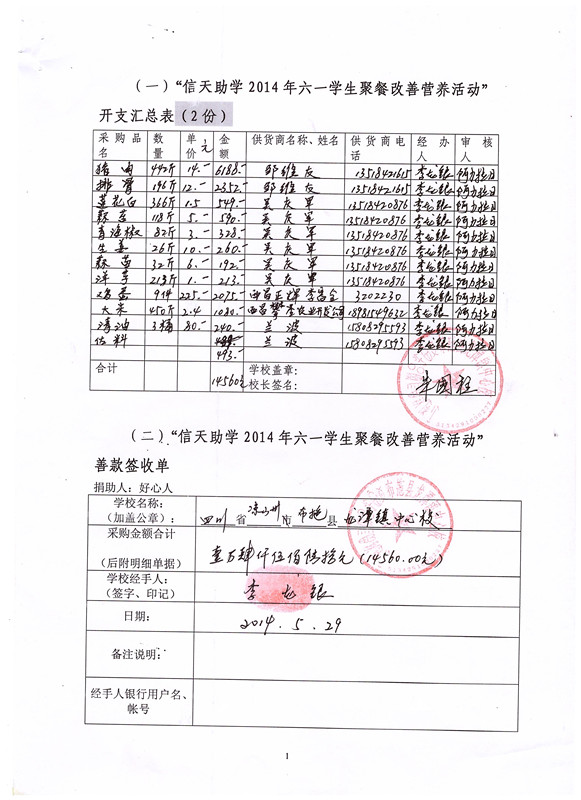 （一）“信天助学 2014 年六一学生聚餐改善营养活动”
开支汇总表（2 份）
采购品名 数量 单价 元 金额 供货商名称、姓名 供货商电话 经办人 审核人
猪肉 442斤 14.- 6188.- 邹维友 13518421615 李龙银 阿力拉日
排骨 196斤 12.- 2352.- 邹维友 13518421615 李龙银 阿力拉日
莲花白 366斤 1.5 549.- 吴庆军 13518420876 李龙银 阿力拉日
118斤 5.- 590.- 吴庆军 13518420876 李龙银 阿力拉日
青海椒 82斤 3.- 328.- 吴庆军 13518420876 李龙银 阿力拉日
生姜 26斤 10.- 260.- 吴庆军 13518420876 李龙银 阿力拉日
蒜苗 32斤 6.- 192.- 吴庆军 13518420876 李龙银 阿力拉日
洋芋 213斤 1.- 213.- 吴庆军 13518420876 李龙银 阿力拉日
鸡蛋 9件 225.- 2075.- 西昌正 3202230 李龙银 阿力拉日
大米 450斤 2.4 1080.- 西昌 农业开发公司 18981549632 李龙银 阿力拉日
清油 3桶 80.- 240.- 兰波 15808295593 李龙银 阿力拉日
佐料 兰波 15808295593 李龙银 阿力拉日
493.-
合计 14560元 学校盖章：
校长签名：
（二）“信天助学 2014 年六一学生聚餐改善营养活动”
善款签收单
捐助人：好心人
学校名称：
（加盖公章）： 四川 省 凉山州 市 布拖 县 龙潭镇中心校
采购金额合计
（后附明细单据） 壹万肆仟伍佰陆拾元（14560.00元）
学校经手人：
（签字、印记） 李龙银
日期： 2014.5.29
备注说明：
经手人银行用户名、
帐号
1